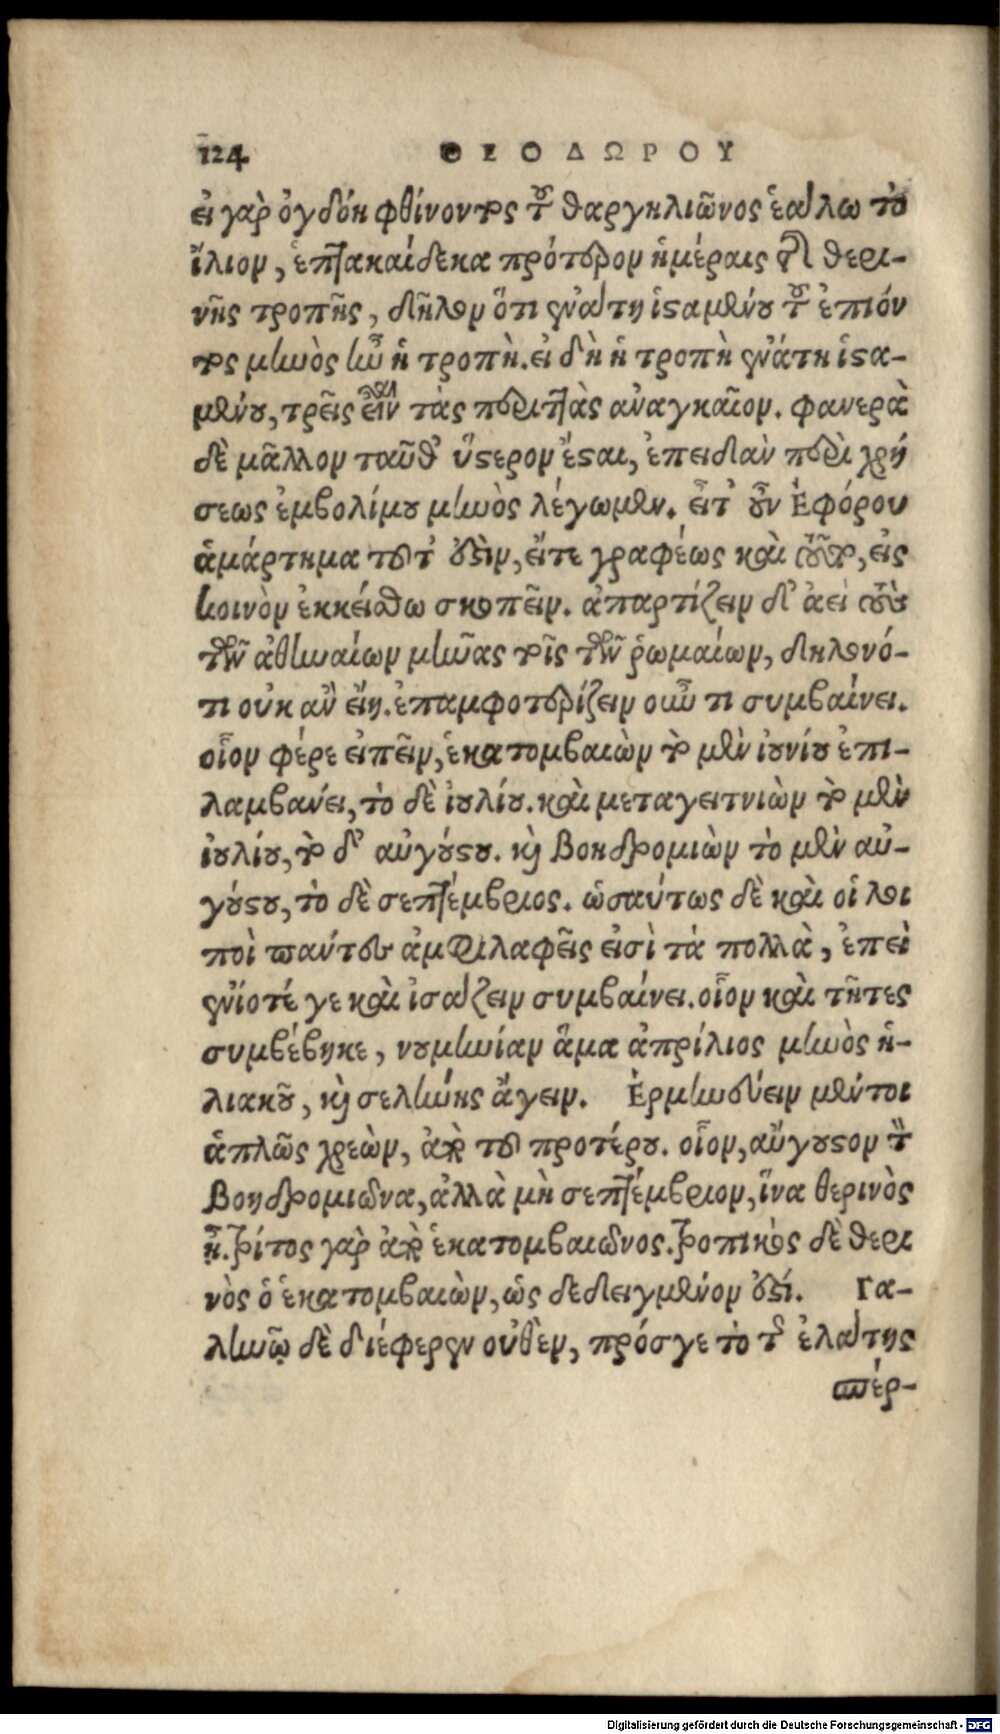 124 ΘΕΟΔΩΡΟΥ
εἰ γὰρ ὀγδόῃ φθίνοντος τοῦ θαργηλιῶνος ἑάλω τὸ
ἴλιον, ἑπτακαίδεκα πρότερον ἡμέραις τῆς θερι-
νῆς τροπῆς, δῆλον ὅτι ἐνάτῃ ἱσαμένου τοῦ ἐπιόν
τος μηνὸς ἦν ἡ τροπὴ. εἰ δὴ ἡ τροπὴ ἐνάτῃ ἱστα-
μένου, τρεῖς εἶναι τὰς περιττὰς ἀναγκαῖον. φανερὰ
δὲ μᾶλλον ταῦθ' ὕστερον ἔσται, ἐπειδὰν περὶ χρή
σεως ἐμβολίμου μηνὸς λέγωμεν. εἶτ' οὖν Ἐφόρου
ἁμάρτημα τοῦτ' ἐστὶν, εἴτε γραφέως καὶ τοῦτο, εἰς
κοινὸν ἐκκείσθω σκοπεῖν. ἀπαρτίζειν δ' ἀεὶ τοὺς
τῶν ἀθηναίων μῆνας τοῖς τῶν ῥωμαίων, δηλονό-
τι οὐκ ἂν εἴη. ἐπαμφοτερίζειν οὖν τι συμβαίνει.
οἷον φέρε εἰπεῖν, ἑκατομβαιὼν τὸ μὲν ἰουνίου ἐπι-
λαμβάνει, τὸ δὲ ἰουλίου. καὶ μεταγειτνιὼν τὸ μὲν
ἰουλίου, τὸ δ' αὐγούστου. καὶ Βοηδρομιὼν τὸ μὲν αὐ-
γούστου, τὸ δὲ σεπτέμβριος. ὡσαύτως δὲ καὶ οἱ λοι
ποὶ πάντες ἀμφιλαφεῖς εἰσὶ τὰ πολλὰ, ἐπεὶ
ἐνίοτέ γε καὶ ἰσάζειν συμβαίνει. οἷον καὶ τῆτες
συμβέβηκε, νουμηνίαν ἅμα ἀπρίλιος μηνὸς ἡ-
λιακοῦ, καὶ σελήνης ἄγειν. Ἑρμηνεύειν μέντοι
ἁπλῶς χρεὼν, ἀπὸ τοῦ προτέρου. οἷον, αὔγουστον τὸν
Βοηδρομιῶνα, ἀλλὰ μὴ σεπτέμβριον, ἵνα θερινὸς
ᾖ. τρίτος γὰρ ἀπὸ ἑκατομβαιῶνος. τροπικὸς δὲ θερι
νὸς ὁ ἑκατομβαιὼν, ὡς δεδειγμένον ἐστί. Γα-
ληνῷ δὲ διέφερεν οὐθὲν, πρόσγε τὸ τῆς ἐλάτης
σπέρ-
Digitalisierung gefördert durch die Deutsche Forschungsgemeinschaft - DFG